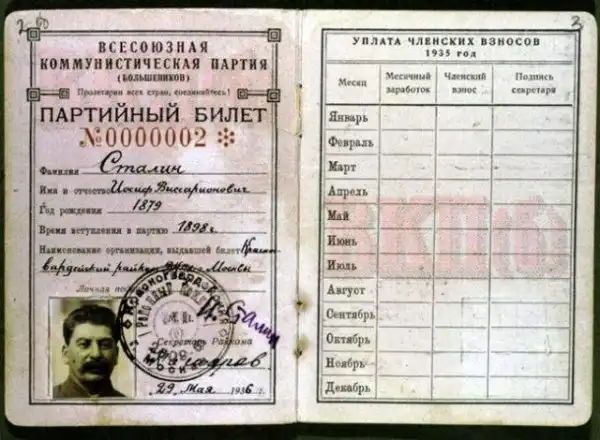 3
ВСЕСОЮЗНАЯ
КОММУНИСТИЧЕСКАЯ ПАРТИЯ
(БОЛЬШЕВИКОВ)
Пролетарии всех стран, соединяйтесь!
ПАРТИЙНЫЙ БИЛЕТ
№0000002
Фамилия Сталин
Имя и отчество Иосиф Виссарионович
Год рождения 1879
Время вступления в партию 1898 г.
Наименование организации, выдавшей билет Красно
гвардейский райком г. Москвы
Личная
Секретарь Райкома
29 Мая 1936 г.
УПЛАТА ЧЛЕНСКИХ ВЗНОСОВ
1935 год
Месяц Месячный заработок Членский взнос Подпись секретаря
Январь
Февраль
Март
Апрель
Май
Июнь
Июль
Август
Сентябрь
Октябрь
Ноябрь
Декабрь
ВКП(б)